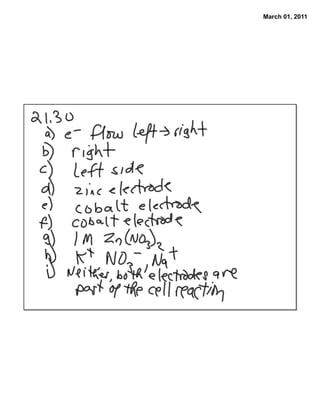 March 01, 2011
21.30
a) e- flow left → right
b) right
c) left side
d) zinc electrode
e) cobalt electrode
f) cobalt electrode
g) 1M Zn(NO3)2
h) K+ NO3- Na+
i) Neither, both electrodes are
part of the cell reaction